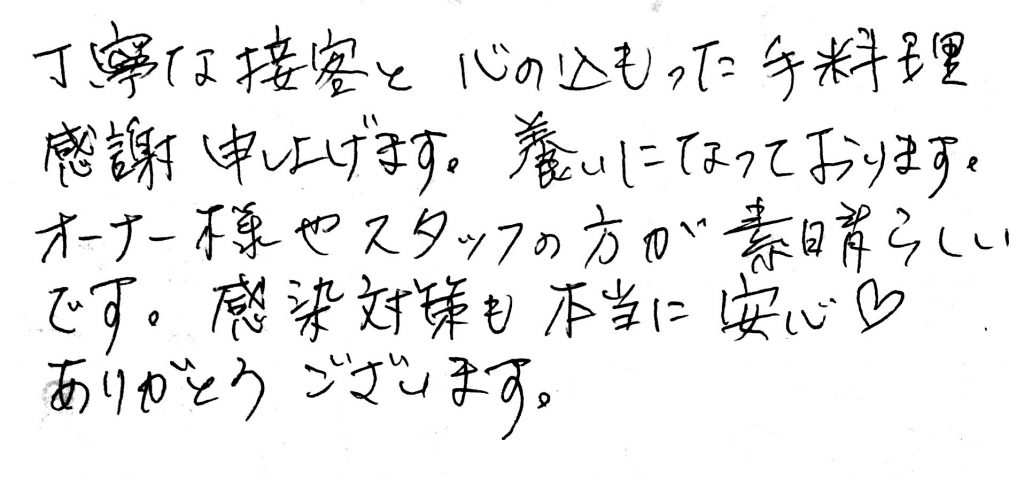 丁寧な接客と 心の込もった手料理
感謝申し上げます。養いになっております。
オーナー様やスタッフの方が素晴らしい
です。感染対策も本当に安心♡
ありがとうございます。